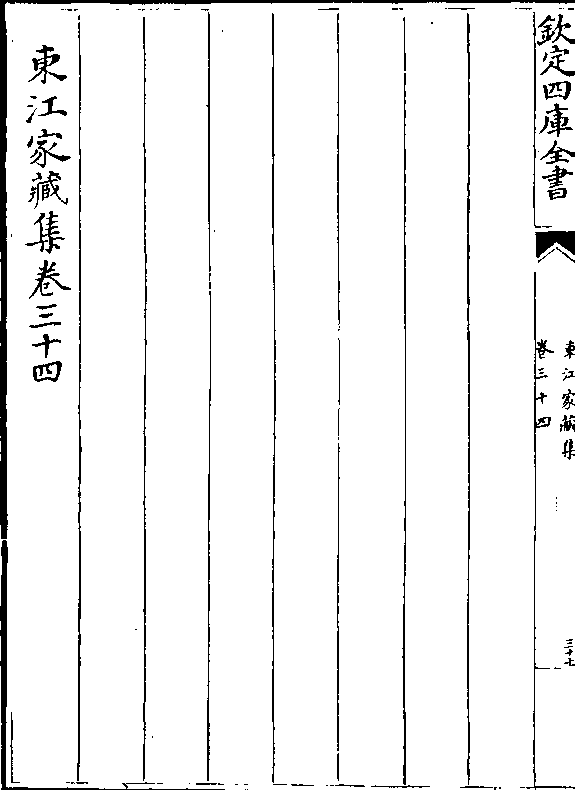 欽定四庫全書
東江家藏集
卷三十四
三十七
東江家藏集卷三十四